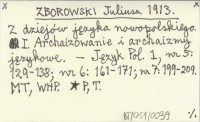 ZBOROWSKI Juliusz 1913.
Z dziejów języka nowopolskiego
I. Archaizowanie i archaizmy
językowe. - Język Pol. 1, nr 5:
129-138; nr 6: 161-171; nr 7: 199-209.
MT, WHP. * P, T.
BJ/051/0039